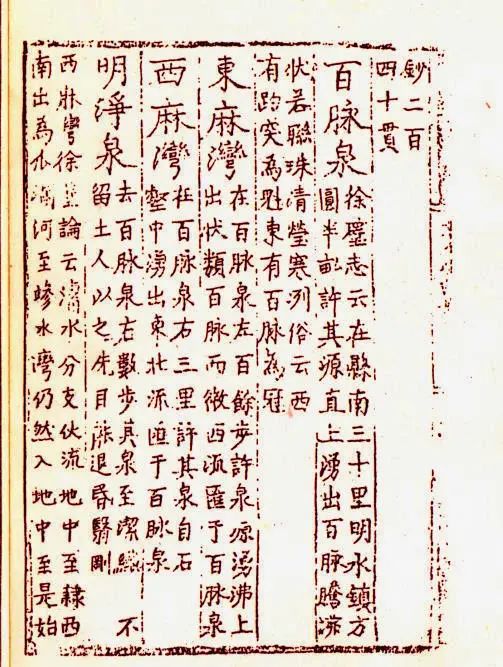 鈔二百
四十貫
百脉泉
徐璧志云在縣南三十里明水鎮方
圓半畝許其源直上湧出百脉騰沸
伏若聯珠清瑩寒列俗云西
有趵突為魁東有百脉為冠
東麻灣
在百脉泉左百餘步許泉源湧沸上
出伏類百脉而微西流匯于百脉泉
西麻灣
在百脉泉右三里許其泉自石
壑中湧出東北派匯于百脉泉
明淨泉
去百脉泉右數步其泉至潔纖不
留土人以之洗目能退昏翳剛
西麻灣徐論云水分支伏流地中至隸西
南出為河至水灣仍然入地中至是始